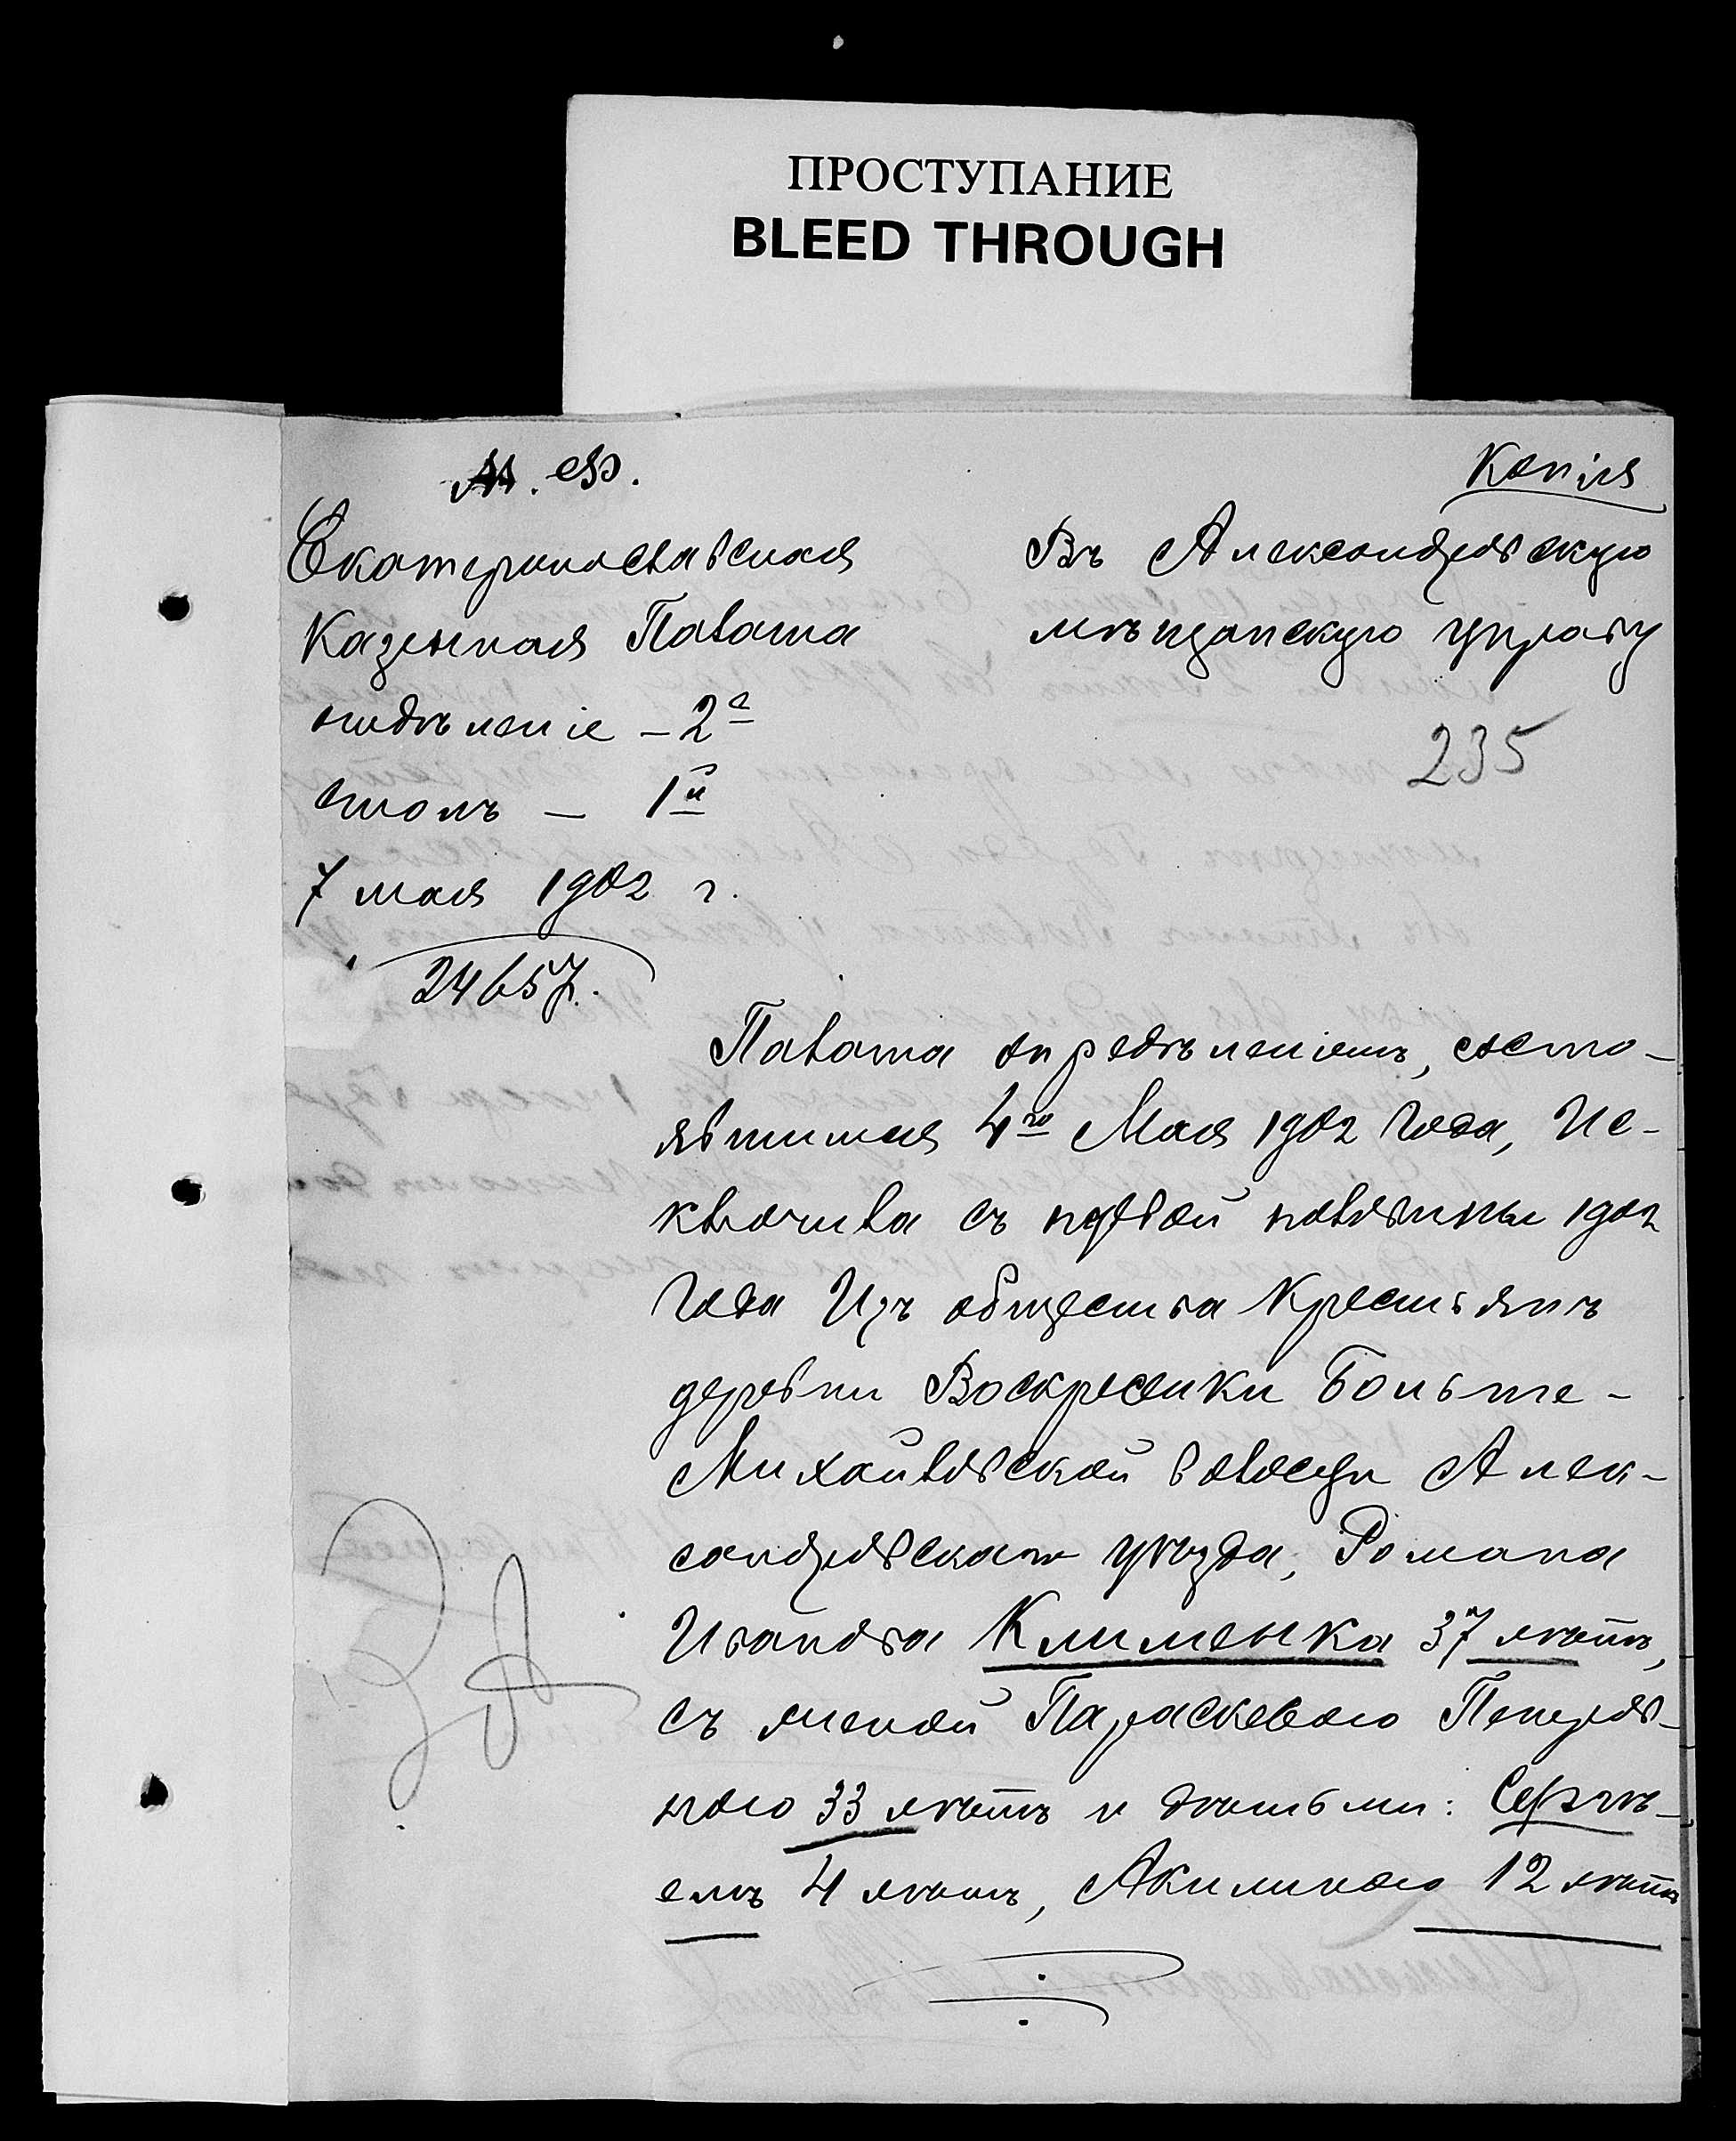 ПРОСТУПАНИЕ
BLEED THROUGH
Копія
М. Ф.
Екатеринославская
Казенная Палата
отдѣленіе – 2е
столъ – 1й
7 мая 1902 г.
24657.
Въ Александровскую
мѣщанскую управу
235
Палата опредѣленіемъ, состо-
явшимся 4го Мая 1902 года, Ис-
ключила съ первой половины 1902
года Изъ общества Крестьянъ
деревни Воскресенки Больше-
Михайловской волости Алек-
сандровскаго уѣзда, Романа
Иванова Клименка 37 лѣтъ,
съ женой Параскевою Петров-
ною 33 лѣтъ и дѣтьми: Сергѣ-
емъ 4 лѣтъ, Акилиною 12 лѣтъ